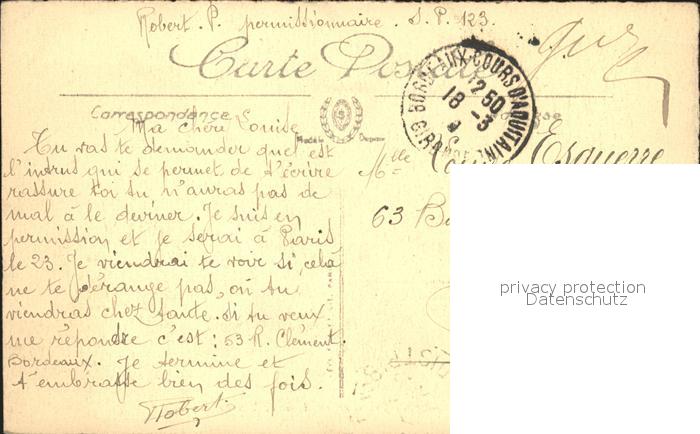 Robert. P. permissionnaire. S.P. 123.
Carte Postale
Correspondance
BORDEAUX-COURS D'AQUITAINE
12 50
18 -3
GIRONDE
Ma chère Louise
Tu vas te demander quel est
l'intrus qui se permet de t'écrire
rassure toi tu n'auras pas de
mal à le deviner. Je suis en
permission et je serai à Paris
le 23. Je viendrai te voir si, celà
ne te dérange pas, où tu
viendras chez tante. Si tu veux
me répondre c'est : 53 R. Clément.
Bordeaux. Je termine et
t'embrasse bien des fois.
Robert.
Mlle Esquerre
63 B
privacy protection
Datenschutz